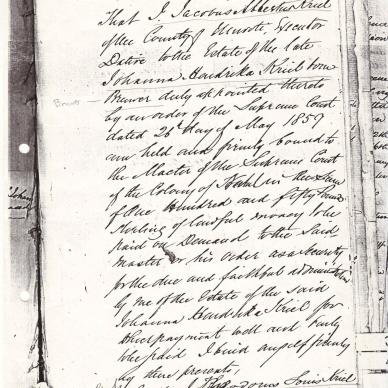 That I. Jacobus Albertus Kriel
of the County of Umvoti, Executor
Dative to the Estate of the late
Johanna Hendrika Kriel born
Brewer duly appointed thereto
by an order of the Supreme Court
dated 26th day of May 1859
am held and firmly bound to
the Master of the Supreme Court
of the Colony of Natal in the Sum
of One Hundred and fifty Pounds
Sterling of lawful money to be
paid on Demand to the Said
Master or his order as a security
for the due and faithful administration
by me of the Estate of the said
Johanna Hendrika Kriel for
which payment well and truly
to be paid I bind myself firmly
by these presents
Louis Kriel